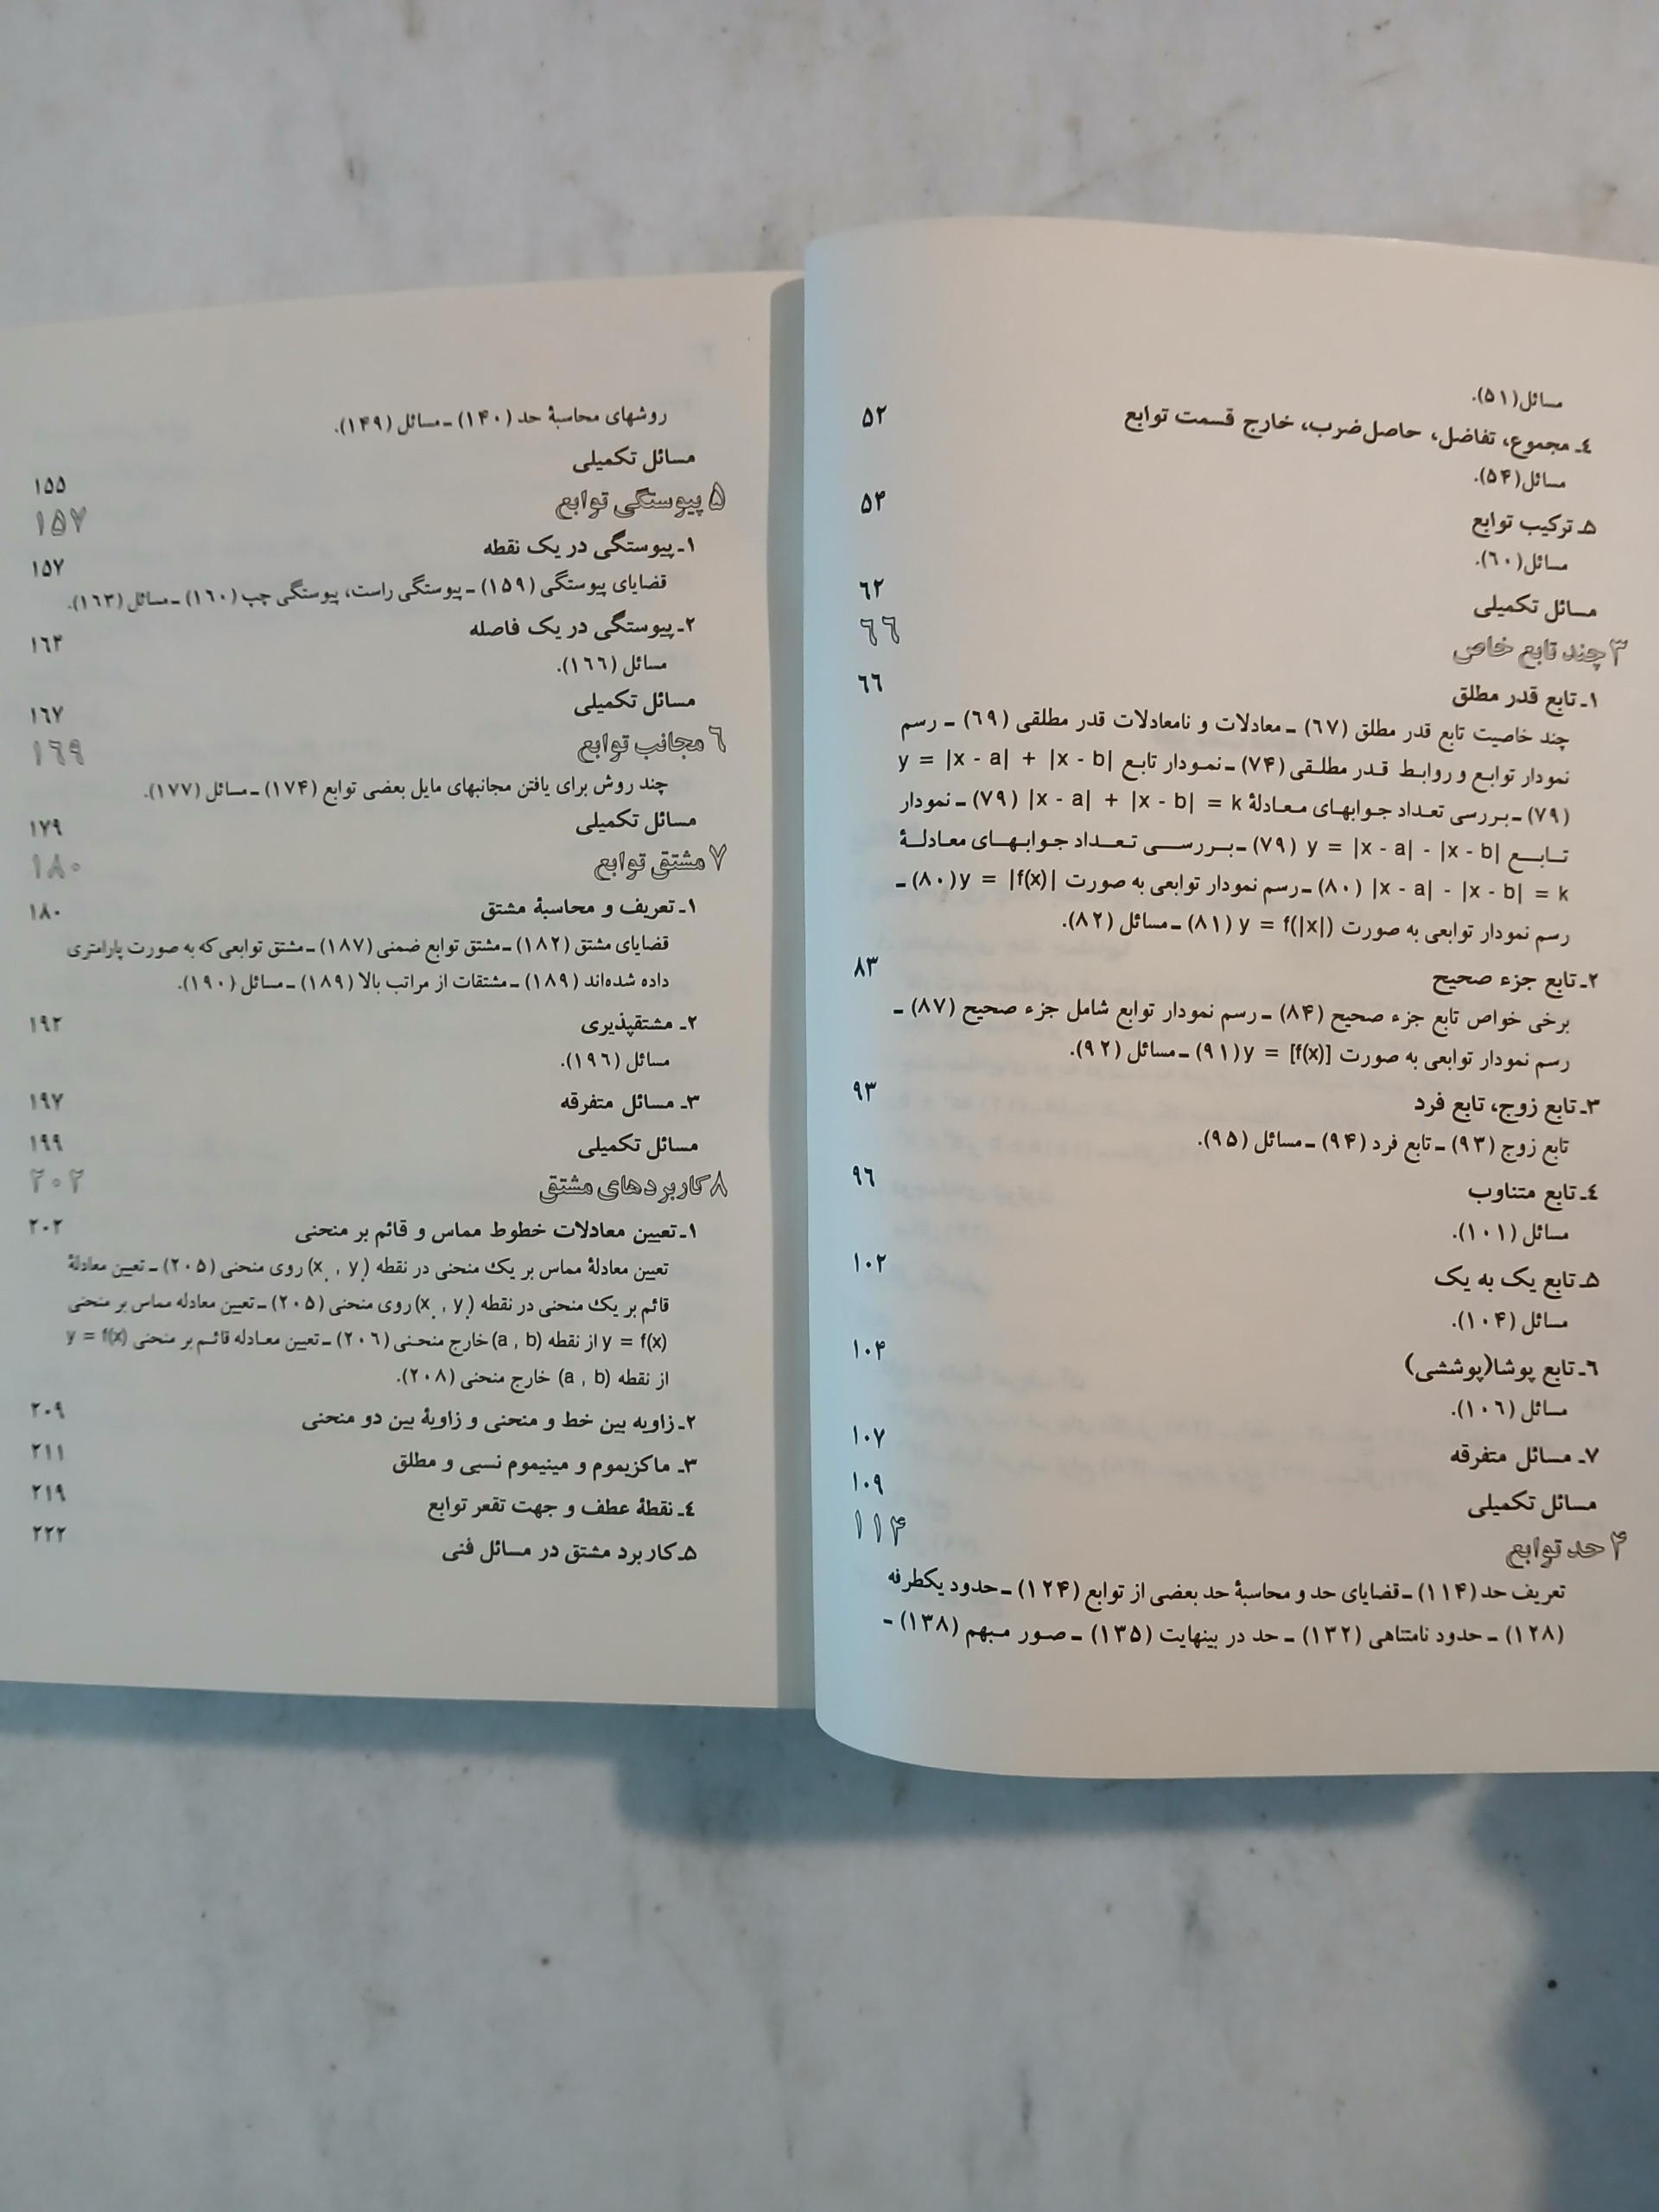 مسائل(۵۱).
٤ـ مجموع، تفاضل، حاصل‌ضرب، خارج قسمت توابع ۵۲
مسائل(۵۴).
۵ـ ترکیب توابع ۵۴
مسائل(۶۰).
مسائل تکمیلی ۶۲
۳ چند تابع خاص ۶۶
۱ـ تابع قدر مطلق ۶۶
چند خاصیت تابع قدر مطلق (۶۷) ـ معادلات و نامعادلات قدر مطلقی (۶۹) ـ رسم
نمودار توابع و روابط قدر مطلقی (۷۴) ـ نمودار تابع y = |x - a| + |x - b|
(۷۹) ـ بررسی تعداد جوابهای معادلهٔ |x - a| + |x - b| = k (۷۹) ـ نمودار
تابع y = |x - a| - |x - b| (۷۹) ـ بررسی تعداد جوابهای معادلهٔ
|x - a| - |x - b| = k (۸۰) ـ رسم نمودار توابعی به صورت y = |f(x)| (۸۰) ـ
رسم نمودار توابعی به صورت y = f(|x|) (۸۱) ـ مسائل (۸۲).
۲ـ تابع جزء صحیح ۸۳
برخی خواص تابع جزء صحیح (۸۴) ـ رسم نمودار توابع شامل جزء صحیح (۸۷) ـ
رسم نمودار توابعی به صورت y = [f(x)] (۹۱) ـ مسائل (۹۲).
۳ـ تابع زوج، تابع فرد ۹۳
تابع زوج (۹۳) ـ تابع فرد (۹۴) ـ مسائل (۹۵).
٤ـ تابع متناوب ۹۶
مسائل (۱۰۱).
۵ـ تابع یک به یک ۱۰۲
مسائل (۱۰۴).
۶ـ تابع پوشا(پوششی) ۱۰۴
مسائل (۱۰۶).
۷ـ مسائل متفرقه ۱۰۷
مسائل تکمیلی ۱۰۹
۴ حد توابع ۱۱۴
تعریف حد (۱۱۴) ـ قضایای حد و محاسبهٔ حد بعضی از توابع (۱۲۴) ـ حدود یکطرفه
(۱۲۸) ـ حدود نامتناهی (۱۳۲) ـ حد در بینهایت (۱۳۵) ـ صور مبهم (۱۳۸) ـ
روشهای محاسبهٔ حد (۱۴۰) ـ مسائل (۱۴۹).
مسائل تکمیلی ۱۵۵
۵ پیوستگی توابع ۱۵۷
۱ـ پیوستگی در یک نقطه ۱۵۷
قضایای پیوستگی (۱۵۹) ـ پیوستگی راست، پیوستگی چپ (۱۶۰) ـ مسائل (۱۶۳).
۲ـ پیوستگی در یک فاصله ۱۶۴
مسائل (۱۶۶).
مسائل تکمیلی ۱۶۷
۶ مجانب توابع ۱۶۹
چند روش برای یافتن مجانبهای مایل بعضی توابع (۱۷۴) ـ مسائل (۱۷۷).
مسائل تکمیلی ۱۷۹
۷ مشتق توابع ۱۸۰
۱ـ تعریف و محاسبهٔ مشتق ۱۸۰
قضایای مشتق (۱۸۲) ـ مشتق توابع ضمنی (۱۸۷) ـ مشتق توابعی که به صورت پارامتری
داده شده‌اند (۱۸۹) ـ مشتقات از مراتب بالا (۱۸۹) ـ مسائل (۱۹۰).
۲ـ مشتقپذیری ۱۹۲
مسائل (۱۹۶).
۳ـ مسائل متفرقه ۱۹۷
مسائل تکمیلی ۱۹۹
۸ کاربردهای مشتق ۲۰۲
۱ـ تعیین معادلات خطوط مماس و قائم بر منحنی ۲۰۲
تعیین معادلهٔ مماس بر یک منحنی در نقطه (x. , y.) روی منحنی (۲۰۵) ـ تعیین معادلهٔ
قائم بر یک منحنی در نقطه (x. , y.) روی منحنی (۲۰۵) ـ تعیین معادله مماس بر منحنی
y = f(x) از نقطه (a , b) خارج منحنی (۲۰۶) ـ تعیین معادله قائم بر منحنی y = f(x)
از نقطه (a , b) خارج منحنی (۲۰۸).
۲ـ زاویه بین خط و منحنی و زاویهٔ بین دو منحنی ۲۰۹
۳ـ ماکزیموم و مینیموم نسبی و مطلق ۲۱۱
٤ـ نقطهٔ عطف و جهت تقعر توابع ۲۱۹
۵ـ کاربرد مشتق در مسائل فنی ۲۲۲